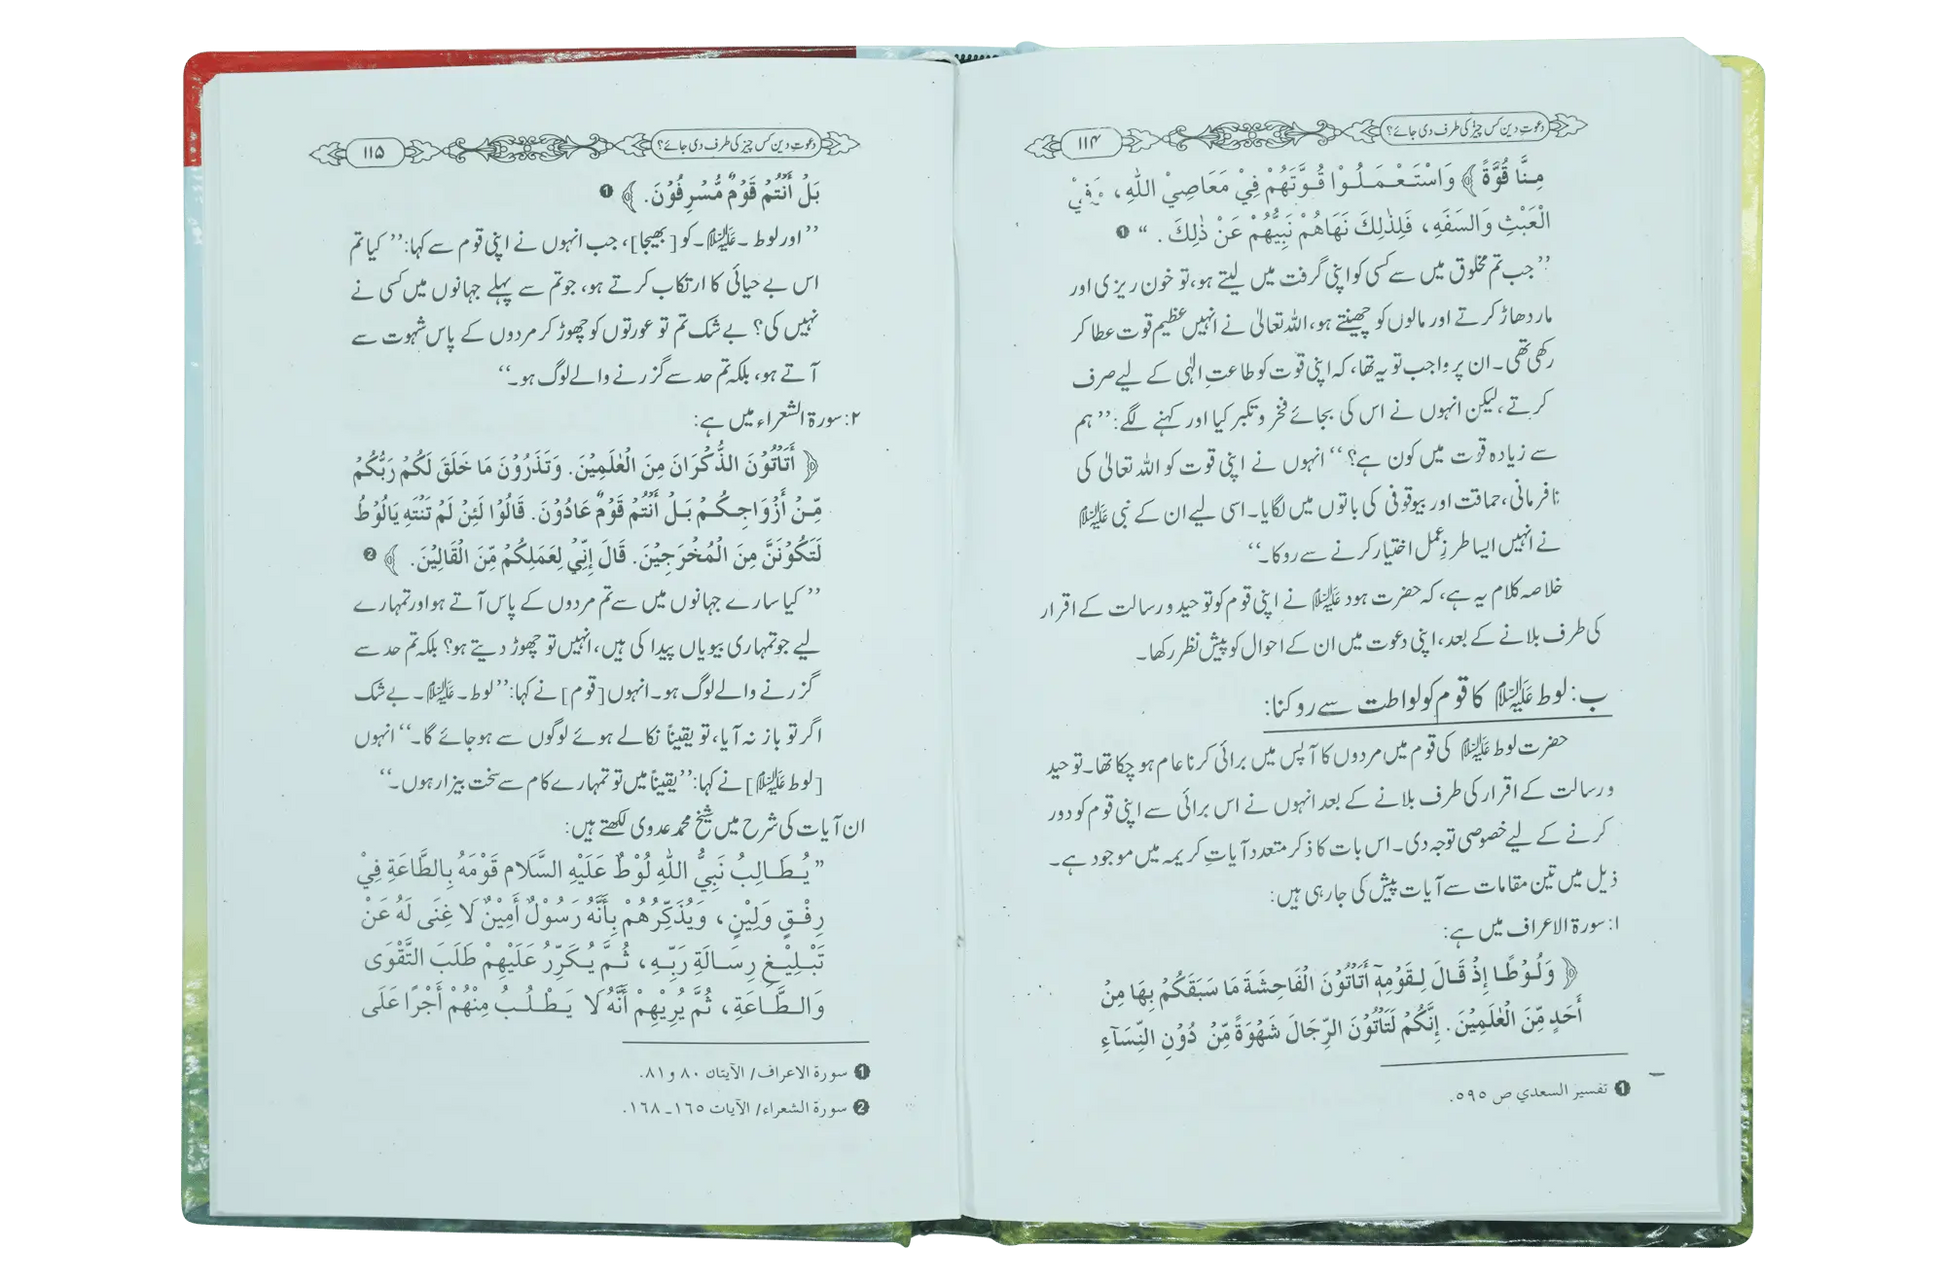 دعوتِ دین کس چیز کی طرف دی جائے؟
۱۱۴
مِنَّا قُوَّةً﴾ وَاسْتَعْمَلُوْا قُوَّتَهُمْ فِيْ مَعَاصِيْ اللّٰهِ، وَفِيْ
الْعَبْثِ وَالسَفَهِ، فَلِذٰلِكَ نَهَاهُمْ نَبِيُّهُمْ عَنْ ذٰلِكَ. “ ❶
’’جب تم مخلوق میں سے کسی کو اپنی گرفت میں لیتے ہو، تو خون ریزی اور
مار دھاڑ کرتے اور مالوں کو چھینتے ہو، اللہ تعالیٰ نے انہیں عظیم قوت عطا کر
رکھی تھی۔ ان پر واجب تو یہ تھا، کہ اپنی قوت کو طاعتِ الٰہی کے لیے صرف
کرتے، لیکن انہوں نے اس کی بجائے فخر و تکبر کیا اور کہنے لگے: ’’ہم
سے زیادہ قوّت میں کون ہے؟‘‘ انہوں نے اپنی قوت کو اللہ تعالیٰ کی
نافرمانی، حماقت اور بیوقوفی کی باتوں میں لگایا۔ اسی لیے ان کے نبی علیہ السلام
نے انہیں ایسا طرزِ عمل اختیار کرنے سے روکا۔‘‘
خلاصہ کلام یہ ہے، کہ حضرت ہود علیہ السلام نے اپنی قوم کو توحید و رسالت کے اقرار
کی طرف بلانے کے بعد، اپنی دعوت میں ان کے احوال کو پیش نظر رکھا۔
ب: لوط علیہ السلام کا قوم کو لواطت سے روکنا:
حضرت لوط علیہ السلام کی قوم میں مردوں کا آپس میں برائی کرنا عام ہو چکا تھا۔ توحید
و رسالت کے اقرار کی طرف بلانے کے بعد انہوں نے اس برائی سے اپنی قوم کو دور
کرنے کے لیے خصوصی توجہ دی۔ اس بات کا ذکر متعدد آیاتِ کریمہ میں موجود ہے۔
ذیل میں تین مقامات سے آیات پیش کی جا رہی ہیں:
۱: سورۃ الاعراف میں ہے:
﴿وَلُوْطًا إِذْ قَالَ لِقَوْمِهٖٓ أَتَأْتُوْنَ الْفَاحِشَةَ مَا سَبَقَكُمْ بِهَا مِنْ
أَحَدٍ مِّنَ الْعٰلَمِيْنَ. إِنَّكُمْ لَتَأْتُوْنَ الرِّجَالَ شَهْوَةً مِّنْ دُوْنِ النِّسَآءِ
❶ تفسير السعدي ص ٥٩٥.
دعوتِ دین کس چیز کی طرف دی جائے؟
۱۱۵
بَلْ أَنْتُمْ قَوْمٌ مُّسْرِفُوْنَ.﴾ ❶
’’اور لوط۔ علیہ السلام۔ کو [بھیجا]، جب انہوں نے اپنی قوم سے کہا: ’’کیا تم
اس بے حیائی کا ارتکاب کرتے ہو، جو تم سے پہلے جہانوں میں کسی نے
نہیں کی؟ بے شک تم تو عورتوں کو چھوڑ کر مردوں کے پاس شہوت سے
آتے ہو، بلکہ تم حد سے گزرنے والے لوگ ہو۔‘‘
۲: سورۃ الشعراء میں ہے:
﴿أَتَأْتُوْنَ الذُّكْرَانَ مِنَ الْعٰلَمِيْنَ. وَتَذَرُوْنَ مَا خَلَقَ لَكُمْ رَبُّكُمْ
مِّنْ أَزْوَاجِكُمْ بَلْ أَنْتُمْ قَوْمٌ عَادُوْنَ. قَالُوْا لَئِنْ لَّمْ تَنْتَهِ يَالُوْطُ
لَتَكُوْنَنَّ مِنَ الْمُخْرَجِيْنَ. قَالَ إِنِّيْ لِعَمَلِكُمْ مِّنَ الْقَالِيْنَ.﴾ ❷
’’کیا سارے جہانوں میں سے تم مردوں کے پاس آتے ہو اور تمہارے
لیے جو تمہاری بیویاں پیدا کی ہیں، انہیں تو چھوڑ دیتے ہو؟ بلکہ تم حد سے
گزرنے والے لوگ ہو۔ انہوں [قوم] نے کہا: ’’لوط۔ علیہ السلام۔ بے شک
اگر تو باز نہ آیا، تو یقیناً نکالے ہوئے لوگوں سے ہو جائے گا۔‘‘ انہوں
[لوط علیہ السلام] نے کہا: ’’یقیناً میں تو تمہارے کام سے سخت بیزار ہوں۔‘‘
ان آیات کی شرح میں شیخ محمد عدوی لکھتے ہیں:
”يُطَالِبُ نَبِيُّ اللّٰهِ لُوْطٌ عَلَيْهِ السَّلَام قَوْمَهُ بِالطَّاعَةِ فِيْ
رِفْقٍ وَلِيْنٍ، وَيُذَكِّرُهُمْ بِأَنَّهُ رَسُوْلٌ أَمِيْنٌ لَا غِنَى لَهُ عَنْ
تَبْلِيْغِ رِسَالَةِ رَبِّهِ، ثُمَّ يُكَرِّرُ عَلَيْهِمْ طَلَبَ التَّقْوَى
وَالطَّاعَةِ، ثُمَّ يُرِيْهِمْ أَنَّهُ لَا يَطْلُبُ مِنْهُمْ أَجْرًا عَلَى
❶ سورة الاعراف/ الآيتان ٨٠ و ٨١.
❷ سورة الشعراء/ الآيات ١٦٥ـ ١٦٨.